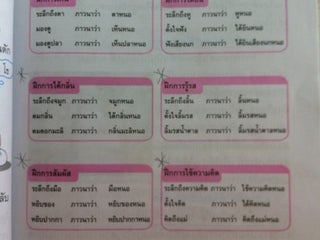 ระลึกถึงตา ภาวนาว่า ตาหนอ
มองดู ภาวนาว่า เห็นหนอ
มองดูปลา ภาวนาว่า เห็นปลาหนอ
ระลึกถึงหู ภาวนาว่า หูหนอ
ตั้งใจฟัง ภาวนาว่า ได้ยินหนอ
ฟังเสียงนก ภาวนาว่า ได้ยินเสียงนกหนอ
ฝึกการได้กลิ่น
ระลึกถึงจมูก ภาวนาว่า จมูกหนอ
ดมกลิ่น ภาวนาว่า ได้กลิ่นหนอ
ดมดอกมะลิ ภาวนาว่า กลิ่นมะลิหนอ
ฝึกการรู้รส
ระลึกถึงลิ้น ภาวนาว่า ลิ้นหนอ
ตั้งใจลิ้มรส ภาวนาว่า ลิ้มรสหนอ
ลิ้มรสน้ำตาล ภาวนาว่า ลิ้มรสน้ำตาลหนอ
ฝึกการสัมผัส
ระลึกถึงมือ ภาวนาว่า มือหนอ
หยิบของ ภาวนาว่า หยิบของหนอ
หยิบปากกา ภาวนาว่า หยิบปากกาหนอ
ฝึกการใช้ความคิด
ระลึกถึงความคิด ภาวนาว่า ใช้ความคิดหนอ
ตั้งใจคิด ภาวนาว่า ได้คิดหนอ
คิดถึงแม่ ภาวนาว่า คิดถึงแม่หนอ